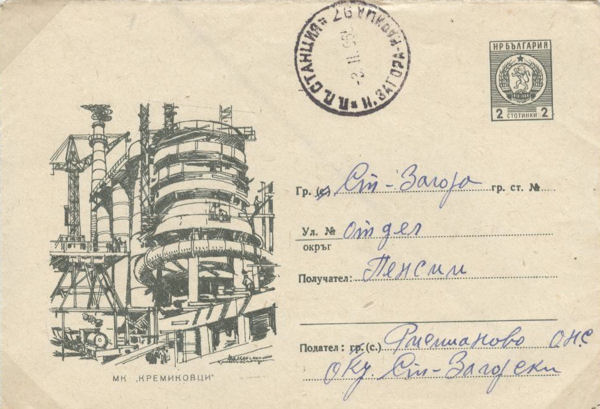 НР БЪЛГАРИЯ
2 СТОТИНКИ 2
П.П. СТАНЦИЯ
Н. ЗАГОРА
Гр. (с) Ст-Загора гр. ст. №
Ул. № отдел
окръг
Получател: Пенсии
Подател: гр.(с.) ОНС
Окр. Ст-Загорски
МК „КРЕМИКОВЦИ"